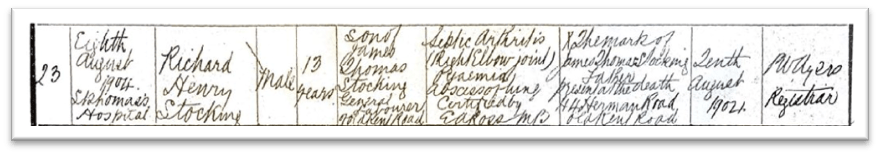 23
Eighth
August
1904.
St. Thomas's
Hospital
Richard
Henry
Stocking
Male
13
years
Son of
James
Thomas
Stocking
General
Labourer
Old Kent Road
Septic Arthritis
(Right Elbow joint)
Pyaemia
abscess of lung
Certified by
E A Ross MB
X The mark of
James Thomas Stocking
Father
present at the death
44 Herman Road
Old Kent Road
Tenth
August
1904.
P W Ayers
Registrar